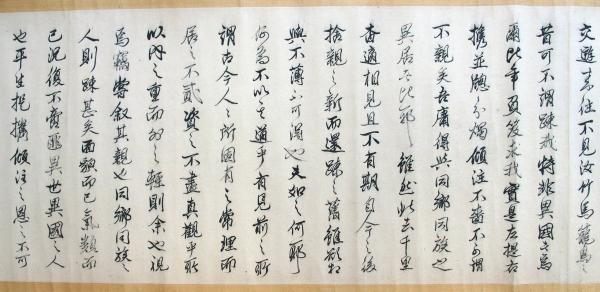 交遊志往不見汝竹馬籠鳥之
昔可不謂疎哉特非異國之為
爾比年更發来我實是左提右
携並聴之分燭傾注不啻不可謂
不親矣吾庸得與同故也
異居亦比耶雖然此去千里
香適相見且不有期自今之後
捨親之新而還疎之舊雖欲
與不薄不可得也夫如之何耶
何為不以之道乎有見前之所
謂古今人之所固有之常理而
居之不貳資之不盡真觀乎所
以内之重而外之輕則余也視
焉竊嘗叙其親也同鄉同故之
人則疎甚矣面貌而已氣類而
已況復不啻匪異世異國之人
也平生提携傾注之恩之不可